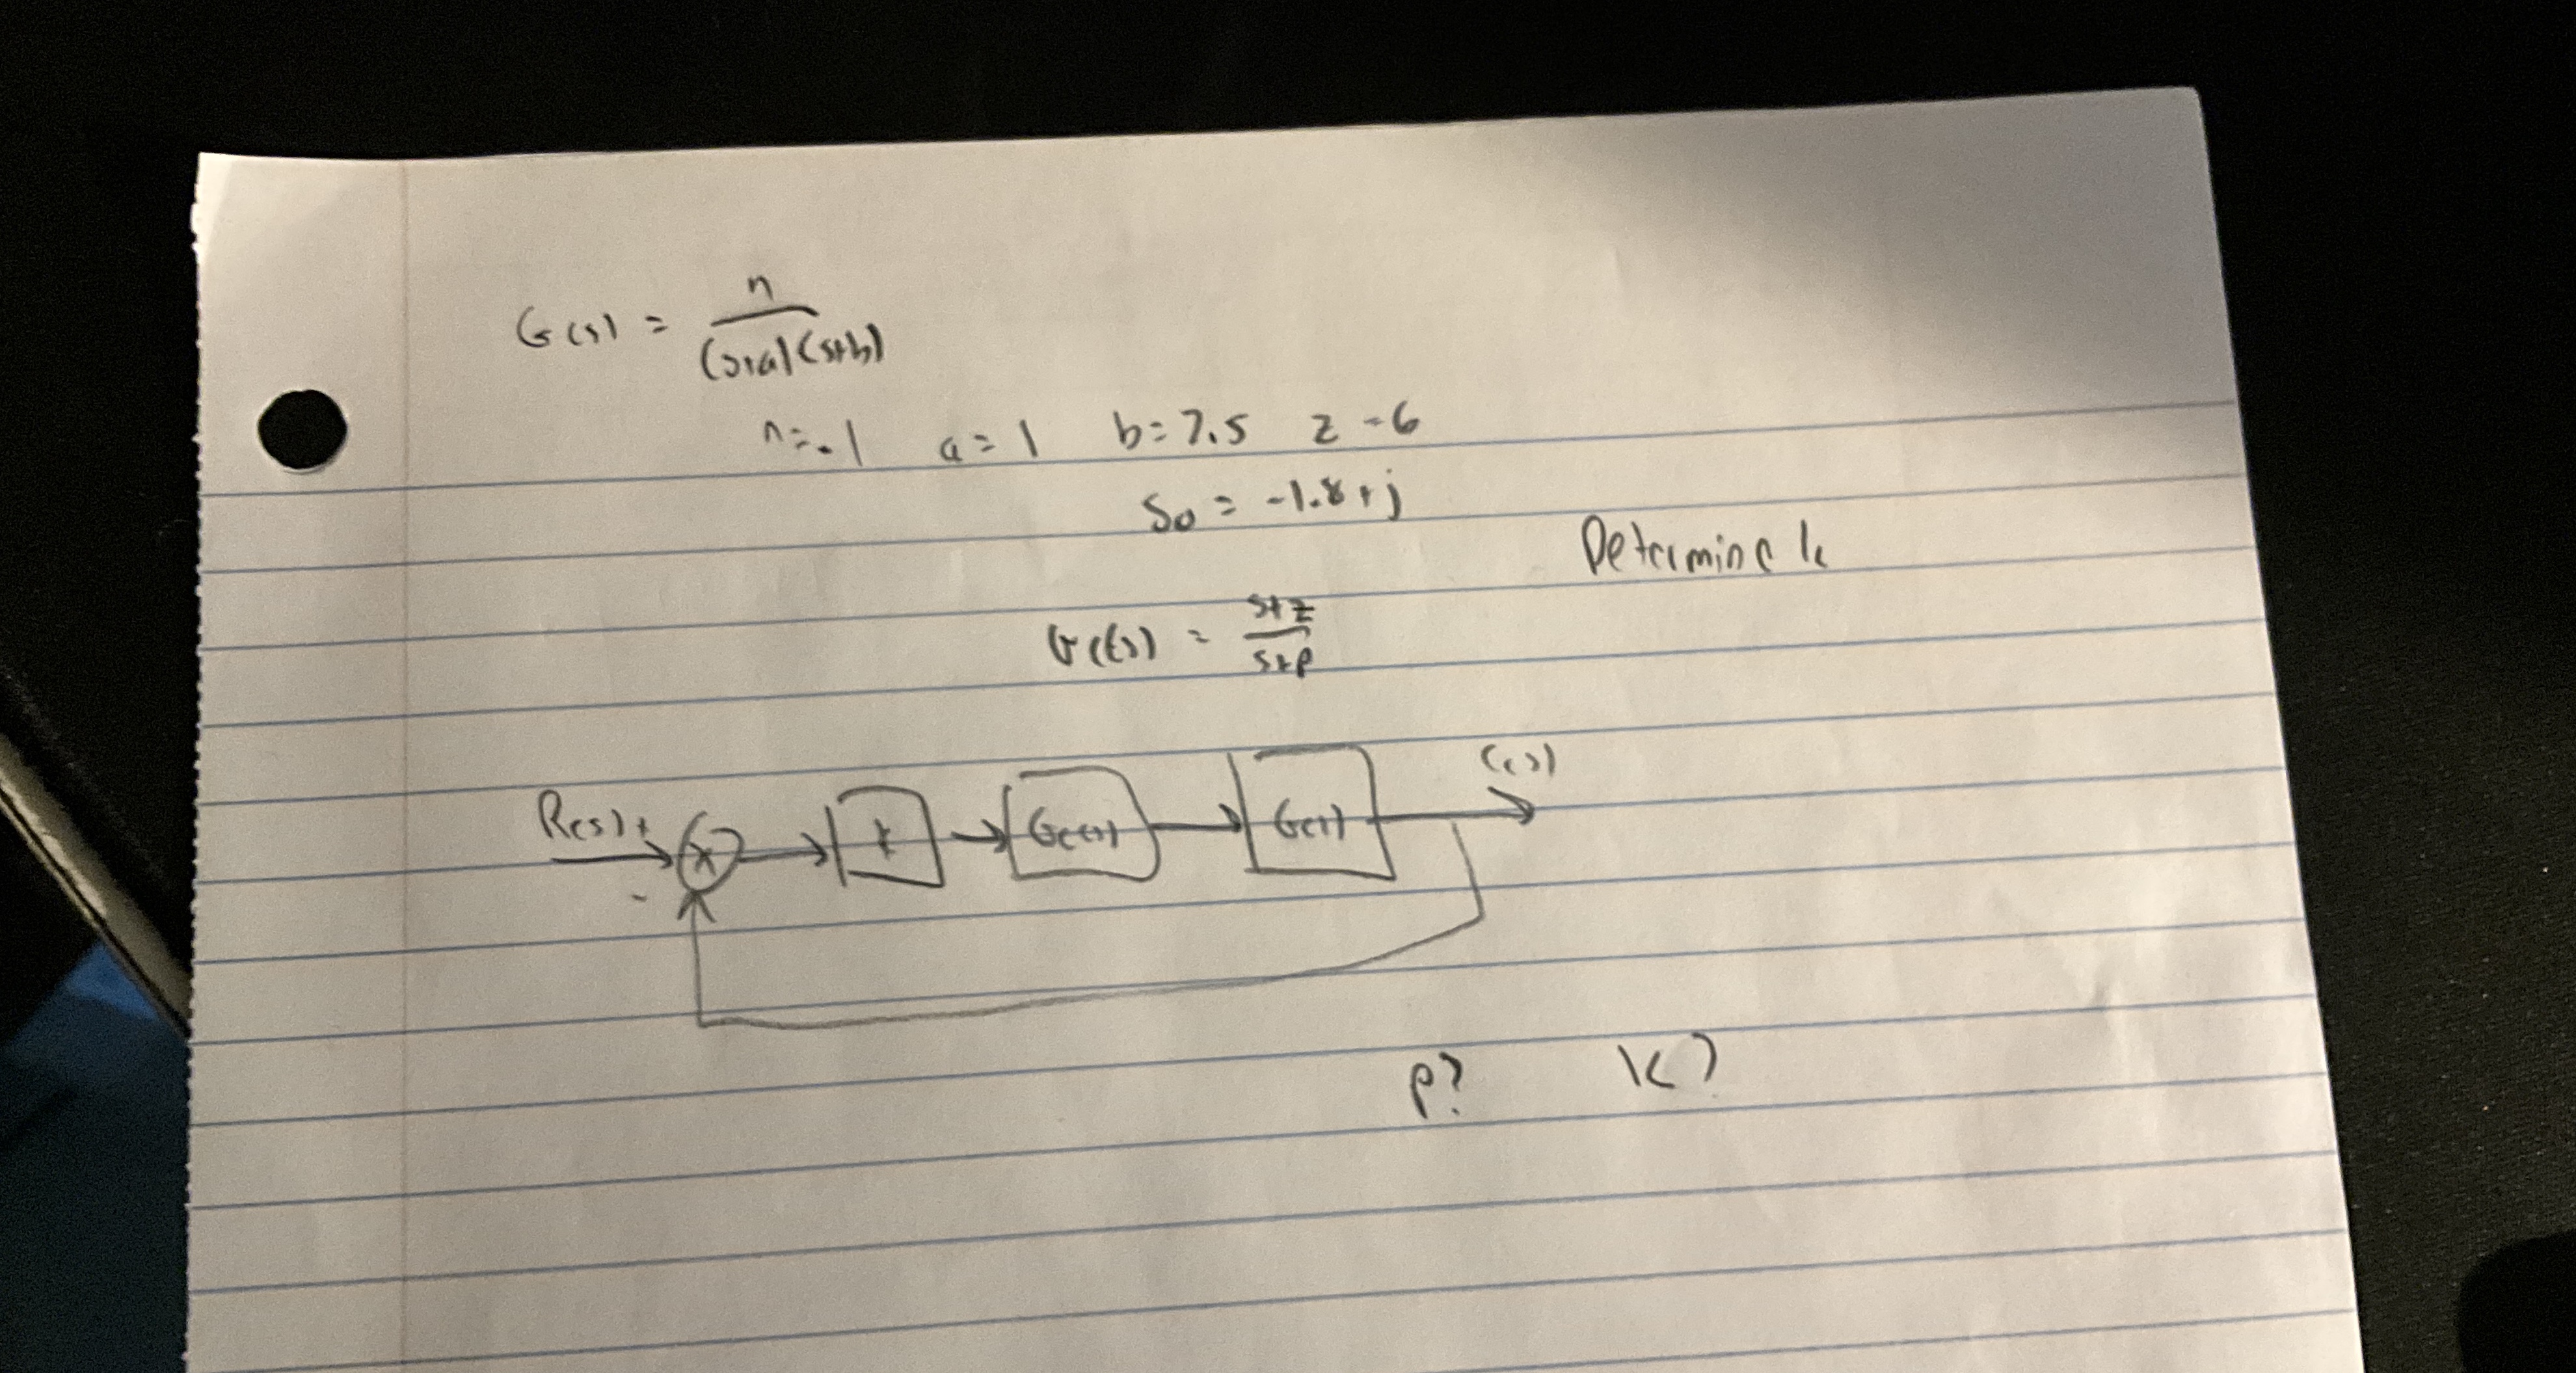 G(s) = n
(s+a)(s+b)
n=.1 a=1 b=7.5 z=6
So = -1.8+j
Determine k
Gc(s) = s+z
s+p
R(s) + - k Gc(s) G(s) C(s)
p? K?